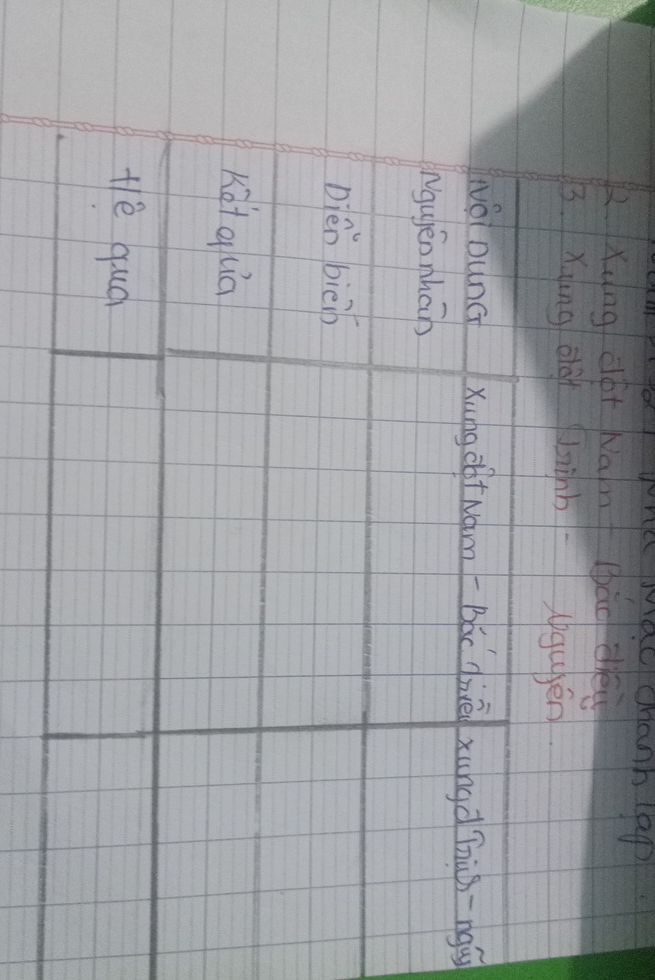 Mạc thành lập
2. Xung đột Nam - Bắc điều
3. Xung đột Trịnh - Nguyên.
Nội Dung Xung đột Nam - Bắc triều xung đ Trịnh - ngũ
Nguyên nhân
Diễn biến
Kết quả
Hệ quả